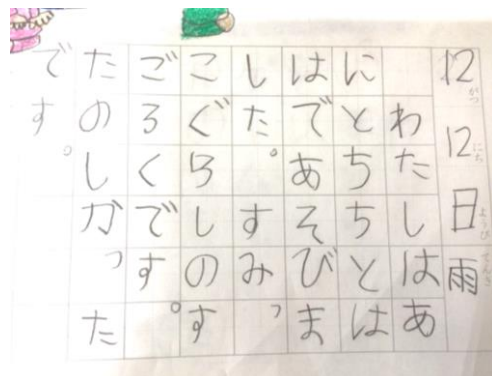 12がつ12にち日ようび雨てんき
わたしはあ
にとちちとは
はであそびま
した。すみっ
こぐらしのす
ごろくです。
たのしかった
です。